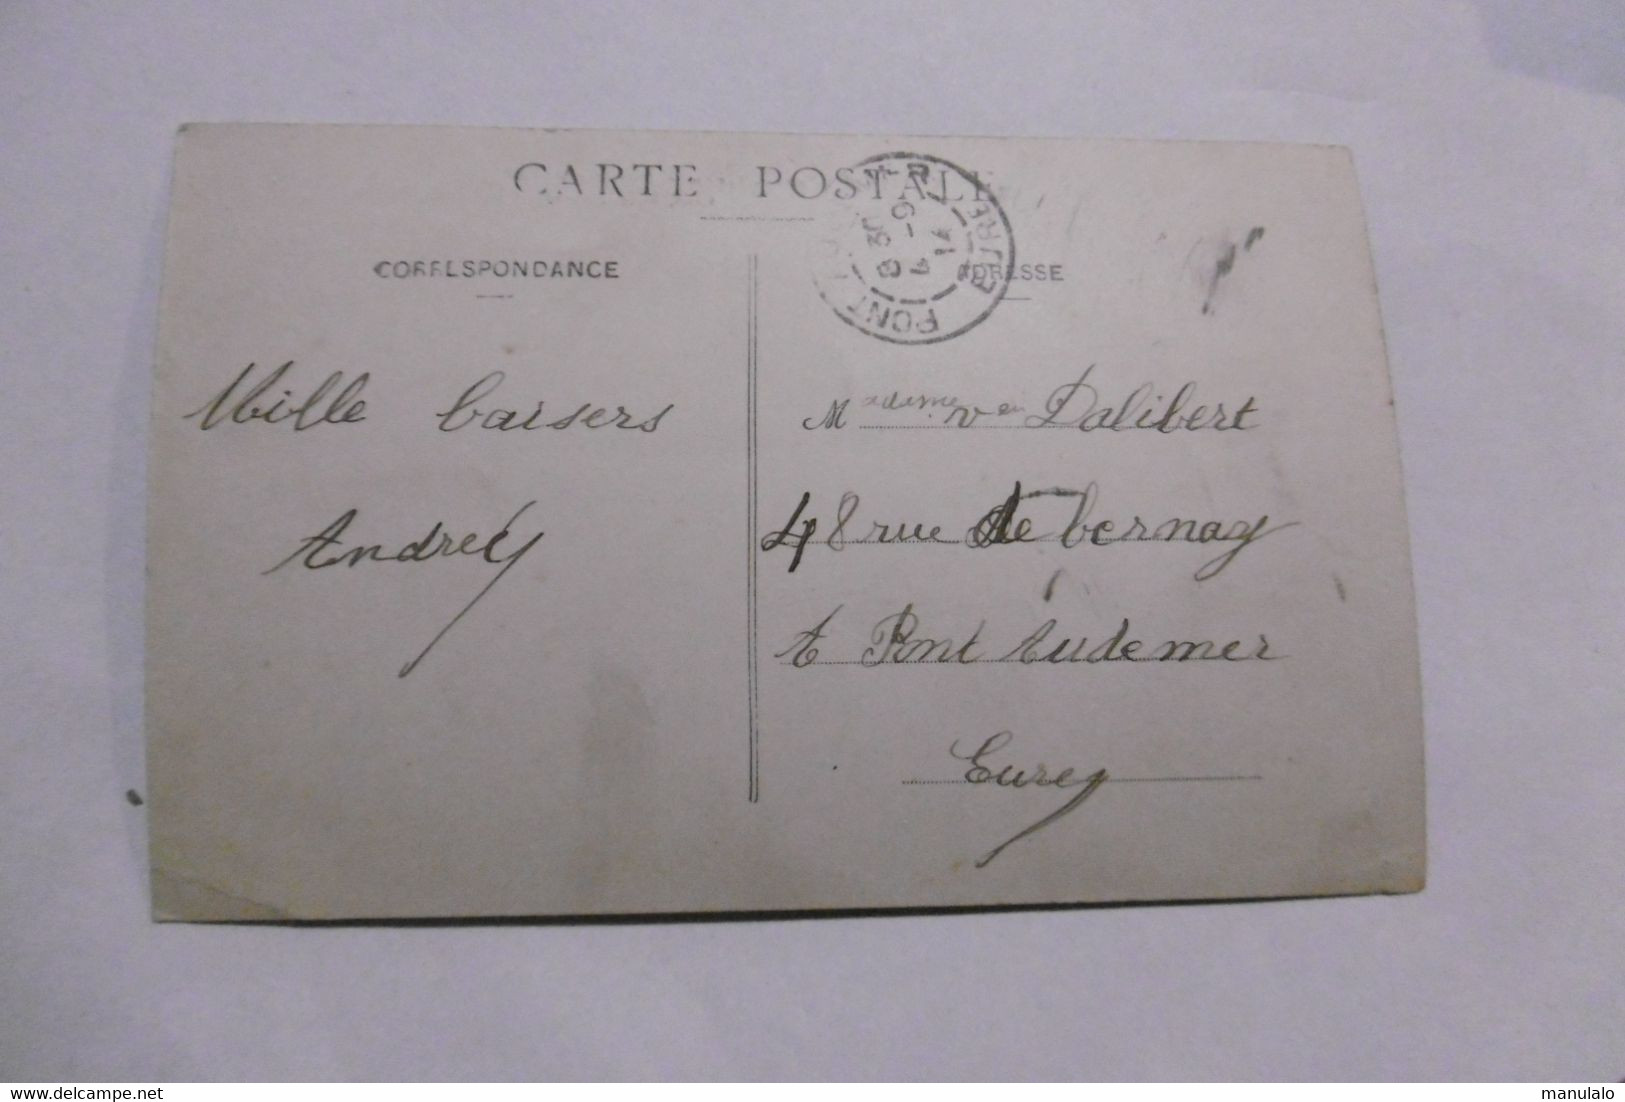 CARTE POSTALE
CORRESPONDANCE
ADRESSE
PONT
EURE
8 30
6-4
14
Mille baisers
Andrée
Madame Ve Dalibert
48 rue de bernay
A Pont Audemer
Eure
delcampe.net
manulalo